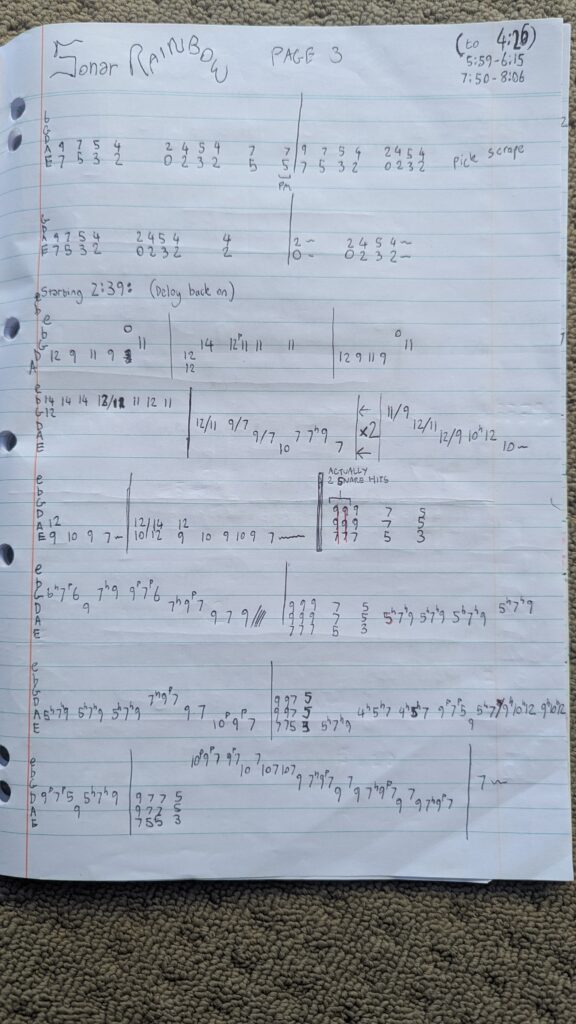 Sonar RAINBOW PAGE 3 (to 4:26)
5:59-6:15
7:50-8:06
b
G
D
A 9 7 5 4 2 4 5 4 7 7 9 7 5 4 2 4 5 4
E 7 5 3 2 0 2 3 2 5 5 7 5 3 2 0 2 3 2 pick scrape
PM
G
D
A 9 7 5 4 2 4 5 4 4 2 ~ 2 4 5 4 ~
E 7 5 3 2 0 2 3 2 2 0 ~ 0 2 3 2 ~
Starting 2:39: (Delay back on)
e
b 0 0
G 11 14 12 p 11 11 11 11
D 12 9 11 9 12 12 9 11 9
A 12
e
b 14 14 14 12/11 11 12 11 11/9
G 12 12/11 9/7 ← 12/11
D 9/7 7 7 h 9 x2 12/9 10 h 12
A 10 7 ← 10 ~
E
ACTUALLY
2 SNARE HITS
e
b
G
D 9 9 9 7 5
A 12 12/14 12 9 9 9 7 5
E 9 10 9 7 ~ 10/12 9 10 9 10 9 7 ~ 7 7 7 5 3
e
b 6 h 7 p 6 7 h 9 9 p 7 p 6
G 9 7 h 9 p 7 5 h 7 h 9
D 9 7 9 //// 9 9 9 7 5
A 9 9 9 7 5 5 h 7 h 9 5 h 7 h 9 5 h 7 h 9
E 7 7 7 5 3
e
b
G 7 h 9 p 7
D 5 h 7 h 9 5 h 7 h 9 5 h 7 h 9 9 7 9 9 7 5
A 10 p 9 p 7 9 9 7 5 4 h 5 h 7 4 h 5 h 7 9 p 7 p 5 5 h 7 9 h 10 h 12 9 h 10 h 12
E 7 7 5 3 5 h 7 h 9 9
e 10 p 9 p 7 9 p 7
b 10 7 10 7 10 7
G 9 7 h 9 p 7
D 9 p 7 p 5 5 h 7 h 9 9 7 7 5 9 7 9 7 h 9 p 7 7 ~
A 9 9 7 7 5 9 7
E 7 5 5 3 9 7 h 9 p 7